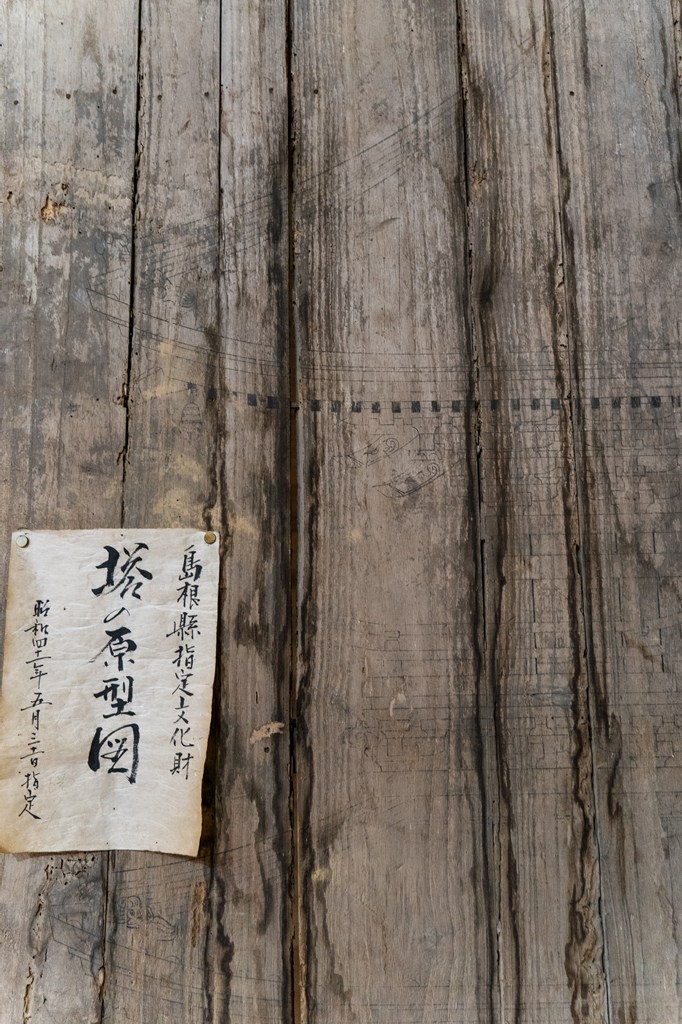 島根縣指定文化財
塔の原型図
昭和四十二年五月三十日指定